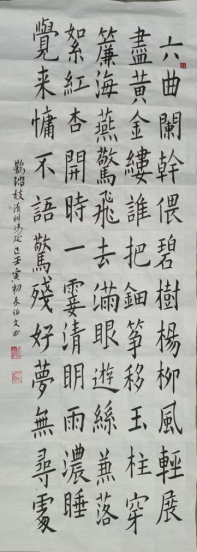 六曲闌幹偎碧樹楊柳風輕展
盡黃金縷誰把鈿箏移玉柱穿
簾海燕驚飛去滿眼遊絲兼落
絮紅杏開時一霎清明雨濃睡
覺来慵不語驚殘好夢無尋處
鵲踏枝